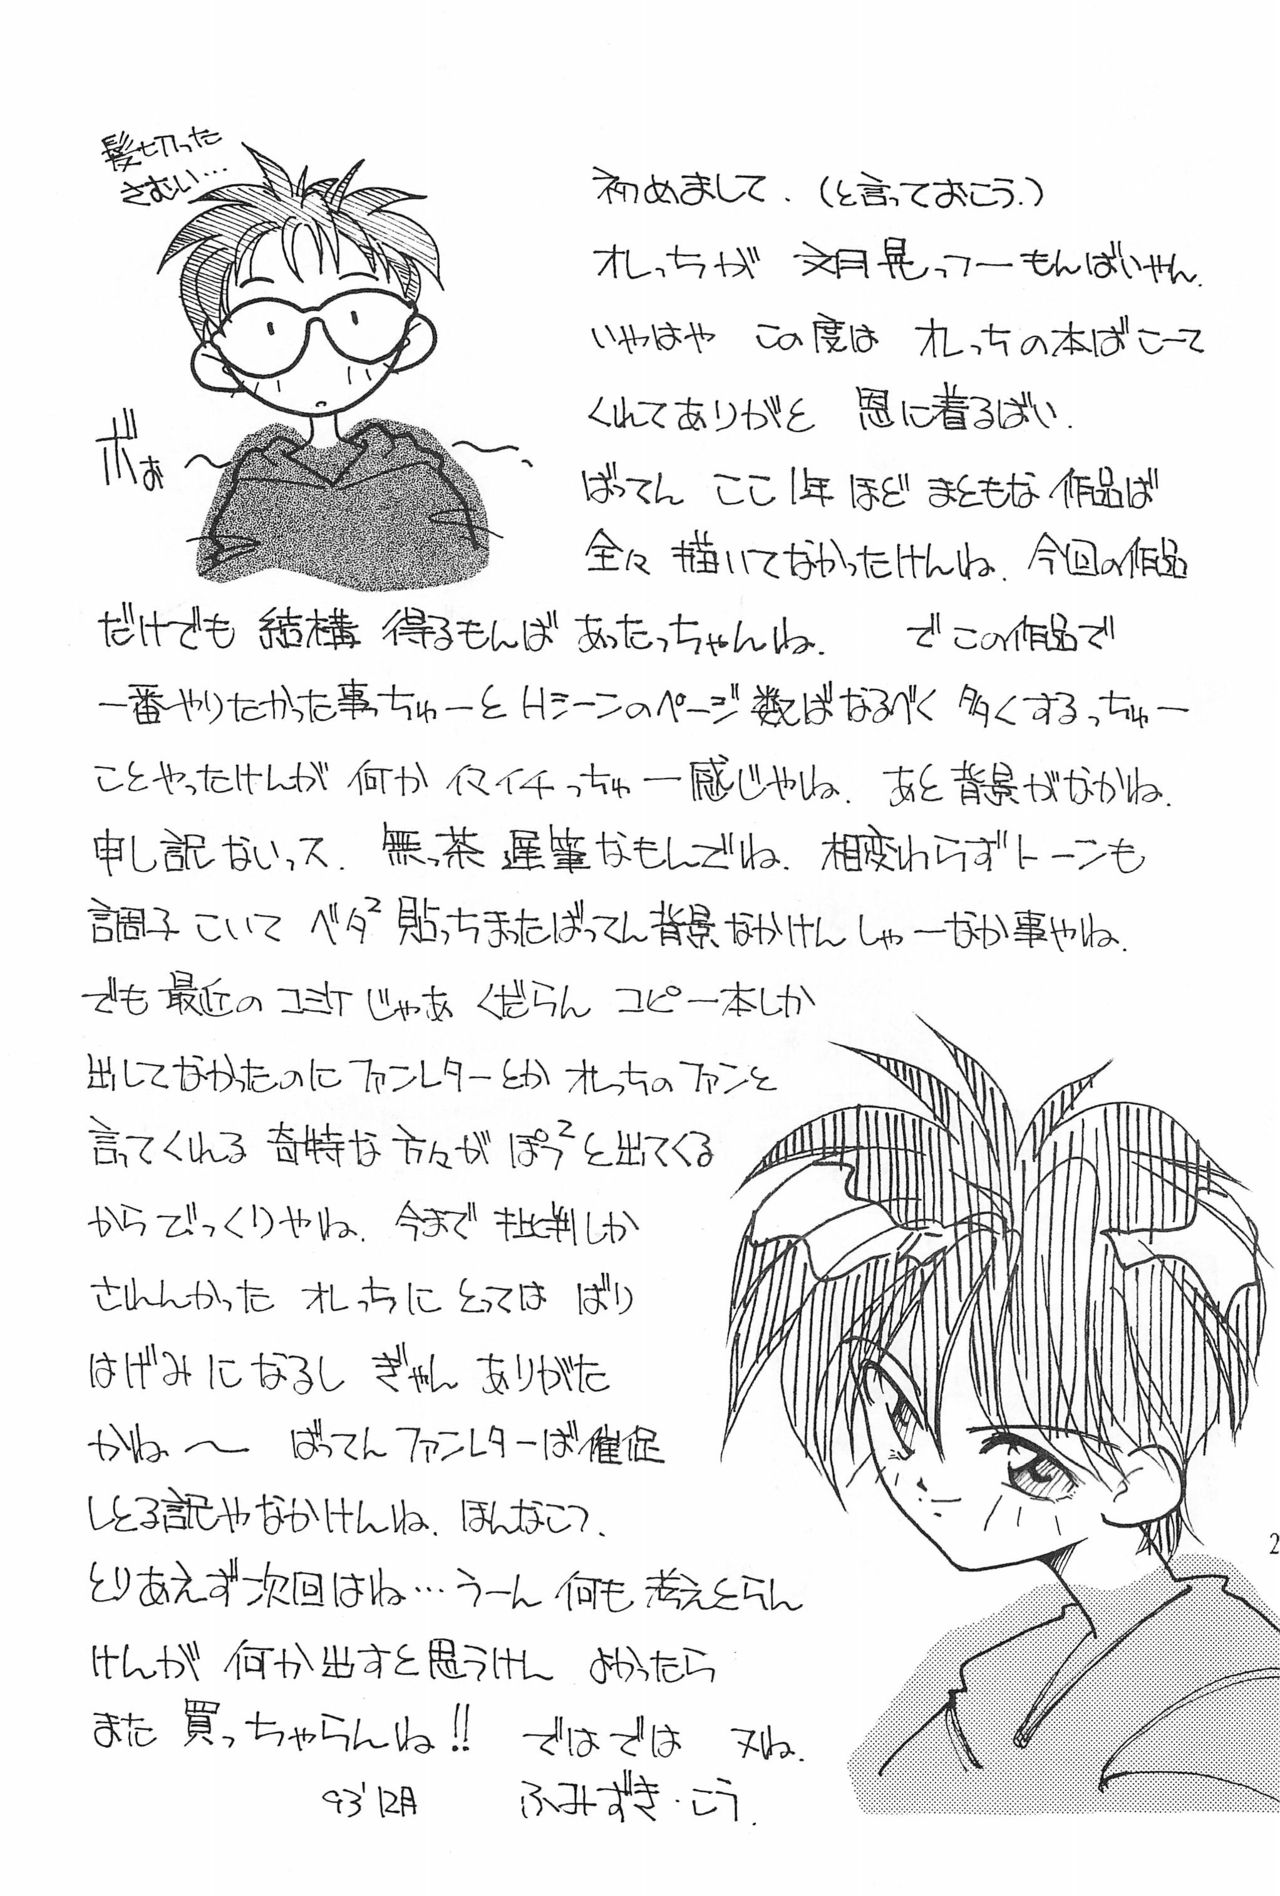 髪切った
さむい…
ボぉ
初めまして.（と言っておこう.）
オレっちが 文月晃っつーもんばいやん.
いやはや この度は オレっちの本ばこーて
くれてありがと 恩に着るばい.
ばってん ここ1年ほど まともな作品ば
全々描いてなかったけんね. 今回の作品
だけでも 結構 得るもんば あったっちゃんね. でこの作品で
一番やりたかった事っちゅーと Hシーンのページ数ばなるべく 多くするっちゅー
ことやったけんが 何か イマイチっちゅー感じやね. あと背景がなかね.
申し訳ないっス. 無っ茶 遅筆なもんでね. 相変わらずトーンも
調子こいて ベタ² 貼っちまったばってん背景なかけんしゃーなか事やね.
でも最近のコミケじゃあ くだらん コピー本しか
出してなかったのにファンレターとか オレっちのファンと
言ってくれる 奇特な方々が ぽつ²と出てくる
からびっくりやね. 今まで 批判しか
されんかった オレっちにとっては ばり
はげみになるし ぎゃん ありがた
かね〜 ばってんファンレターば催促
しとる訳やなかけんね. ほんなこつ.
とりあえず次回はね…うーん 何も考えとらん
けんが 何か出すと思うけん よかったら
また 買っちゃらんね!! ではでは 又ね.
93'12月 ふみずき・こう.
2